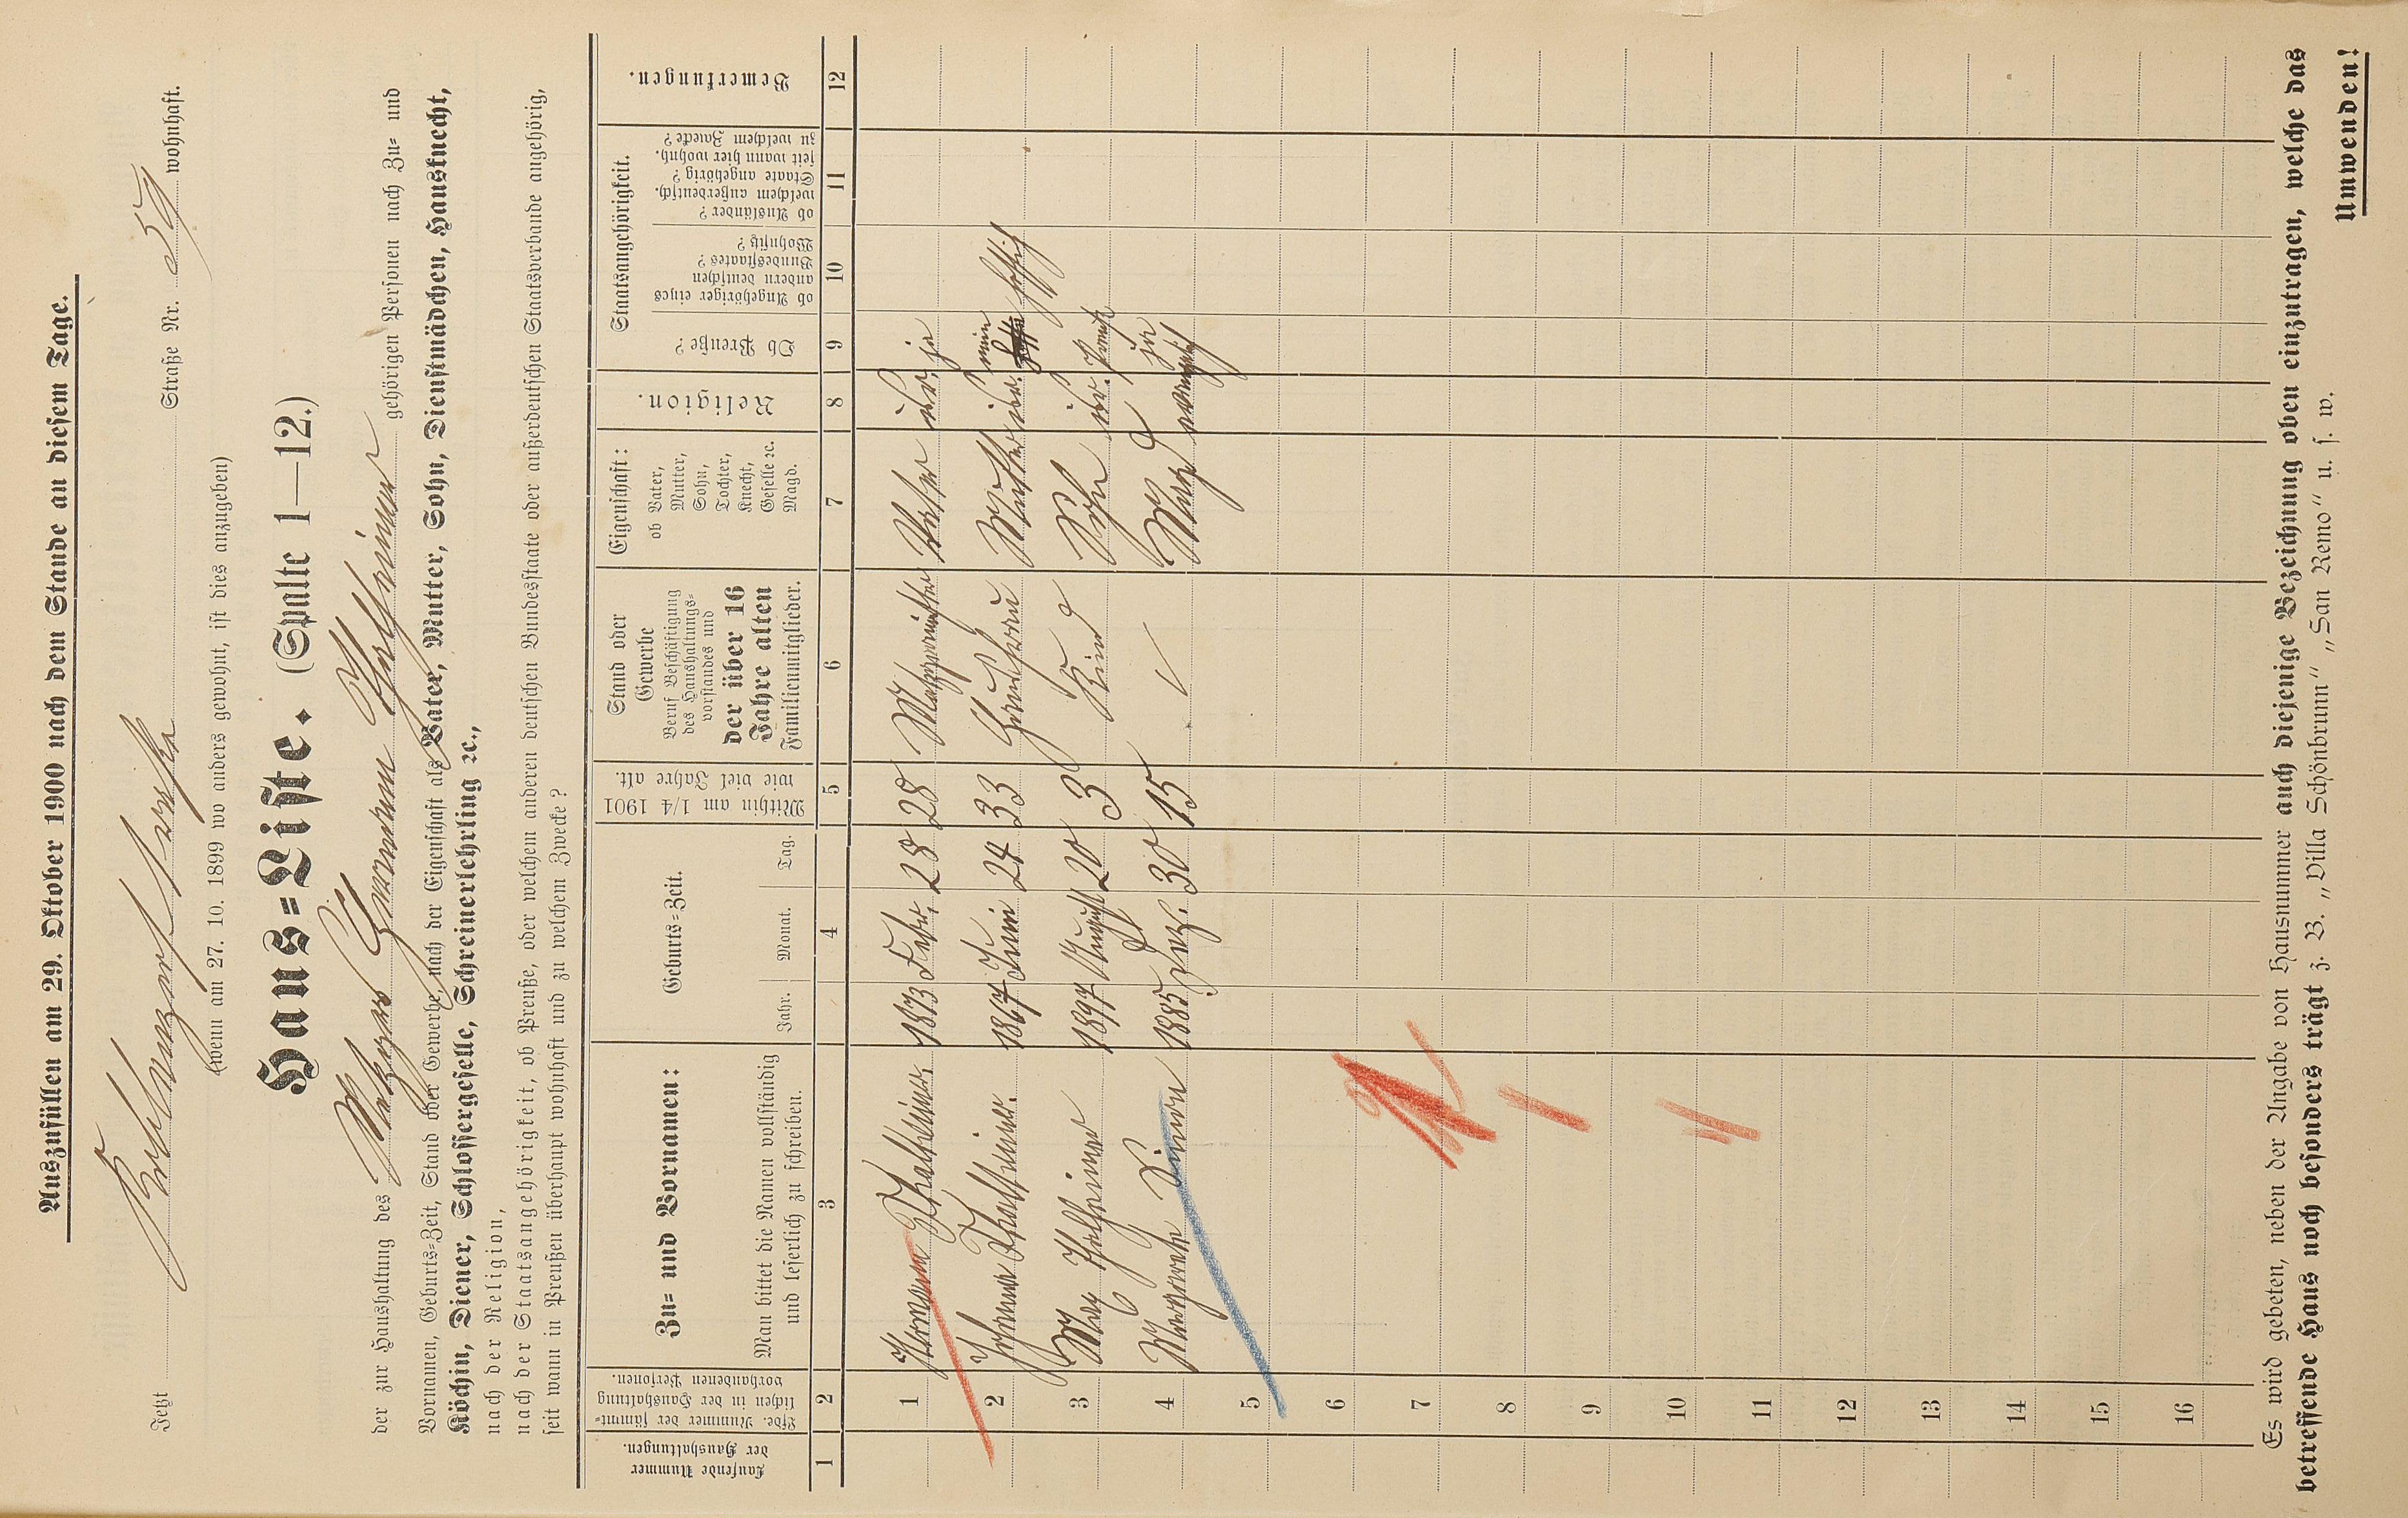 Auszufüllen am 29. Oktober 1900 nach dem Stande an diesem Tage.
Jetzt Straße Nr. 59 wohnhaft.
(wenn am 27. 10. 1899 wo anders gewohnt, ist dies anzugeben)
Haus=Liste. (Spalte 1—12.)
der zur Haushaltung des Metzger Hermann Thalheimer gehörigen Personen nach Zu= und
Vornamen, Geburts=Zeit, Stand oder Gewerbe, nach der Eigenschaft als Vater, Mutter, Sohn, Dienstmädchen, Hausknecht,
Köchin, Diener, Schlossergeselle, Schreinerlehrling ꝛc.,
nach der Religion,
nach der Staatsangehörigkeit, ob Preuße, oder welchem anderen deutschen Bundesstaate oder außerdeutschen Staatsverbande angehörig,
seit wann in Preußen überhaupt wohnhaft und zu welchem Zwecke?
Laufende Nummer der Haushaltungen.
Lfde. Nummer der sämmtlichen in der Haushaltung vorhandenen Personen.
Zu= und Vornamen:
Man bittet die Namen vollständig
und leserlich zu schreiben.
Geburts=Zeit.
Jahr. Monat. Tag.
Mithin am 1/4 1901
wie viel Jahre alt.
Stand oder
Gewerbe
Beruf Beschäftigung
des Haushaltungs=
vorstandes und
der über 16
Jahre alten
Familienmitglieder.
Eigenschaft:
ob Vater,
Mutter,
Sohn,
Tochter,
Knecht,
Geselle ꝛc.
Magd.
Religion.
Staatsangehörigkeit.
Ob Preuße?
ob Angehöriger eines
andern deutschen
Bundesstaates?
Wohnsitz?
ob Ausländer?
welchem außerdeutsch.
Staate angehörig?
seit wann hier wohnh.
zu welchem Zwecke?
Bemerkungen.
1 2 3 4 5 6 7 8 9 10 11 12
1 Hermann Thalheimer 1873 Febr. 28 28 Metzgermeister Vater isr. ja
2 Johanna Thalheimer 1867 Juni 24 33 Ehefrau Mutter isr. nein hessisch
3 Max Thalheimer 1897 August 20 3 Kind Sohn isr. Preuße
4 Margarethe Simon 1885 Dez. 30 15 Magd ja
5
6
7
8
9
10
11
12
13
14
15
16
Es wird gebeten, neben der Angabe von Hausnummer auch diejenige Bezeichnung oben einzutragen, welche das
betreffende Haus noch besonders trägt z. B. „Villa Schönbrunn“ „San Remo“ u. s. w.
Umwenden!